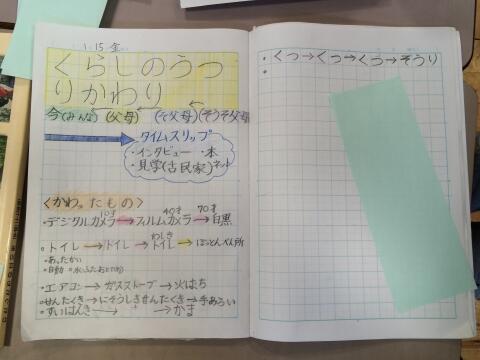 1.15 金
くらしのうつ
りかわり
今(みんな) (父母) (そ父母)(そうそ父母
タイムスリップ
・インタビュー ・本
・見学(古民家) ネット
〈かわったもの〉
10才 40才 70才
・デジタルカメラ→フィルムカメラ→白黒
わしき
・トイレ→トイレ→トイレ→ぼっとんべん所
・あったかい
・自動
・エアコン→ガスストーブ→火ばち
・せんたくき→にそうしきせんたくき→手あらい
・すいはんき→ →かま
・くつ→くつ→くつ→ぞうり